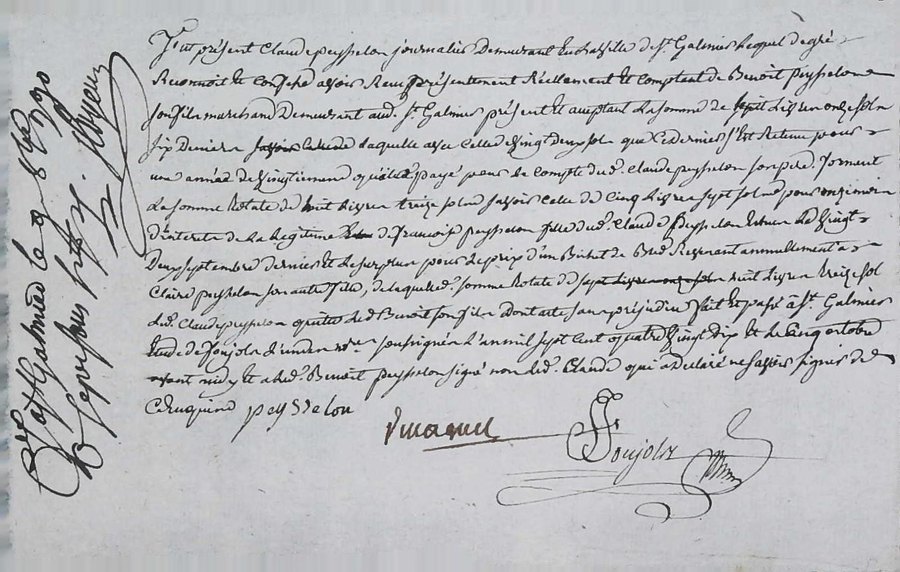 fut présent Claude peysselon journalier Demeurant En la ville de St. Galmier lequel degré
Reconnoit Et Confesse avoir Reçu présentement Réellement Et Comptant de Benoit peysselon
son fils marchand Demeurant aud. St. Galmier présent Et acceptant La somme de sept Livres onze sols
six Deniers laquelle avec Celle de vingt Deux sols que Ce dernier s'Est Retenu pour
une année de vingtiemes qu'il a payé pour le Compte dud. Claude peysselon son père. forment
La somme totale de huit Livres treize sols savoir Celle de Cinq Livres sept sols pour onze mois
D'interets de La legitime de françoise peysselon fille dud. Claude peysselon Echus Le vingt
Deux septembre dernier Et Le surplus pour Le prix d'un Bichet de Bled Revenant annuellement a
Claire peysselon son autre fille, de laquelle d. somme totale de sept Livres onze sols huit Livres treize sols
led. Claude peysselon quitte led. Benoit son fils Dont acte sans préjudice fait Et passé à St. Galmier
Etude de Soujols L'un des nres soussignés L'an mil sept Cent quatre vingt dix Et le Cinq octobre
avant midy Et a led. Benoit peysselon signé non led. Claude qui a Déclaré ne savoir signer de
Ce Enquis peysselon
Soujols
à St Galmier le 9 8bre 1790